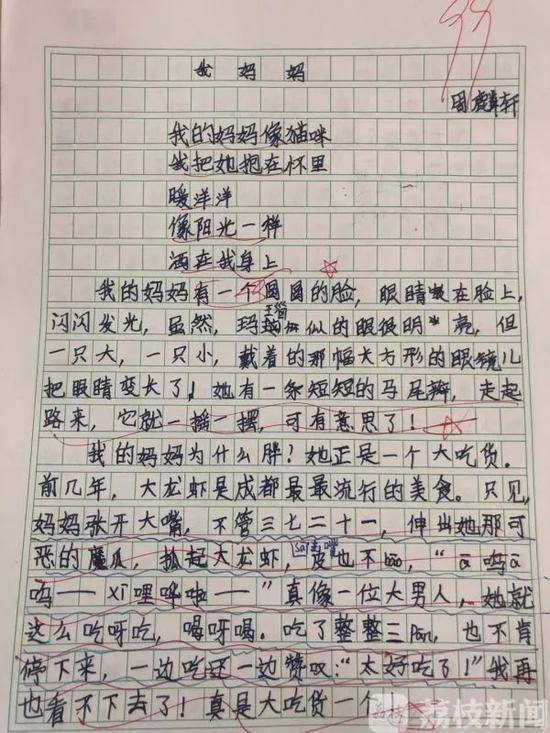 99
我妈妈
周麟轩
我的妈妈像猫咪
我把她抱在怀里
暖洋洋
像阳光一样
洒在我身上
我的妈妈有一个圆圆的脸，眼睛在脸上，
闪闪发光，虽然，玛瑙似的眼很明亮，但
一只大，一只小，戴着的那幅大方形的眼镜儿
把眼睛变长了！她有一条短短的马尾辫，走起
路来，它就一摇一摆，可有意思了！
我的妈妈为什么胖？她正是一个大吃货。
前几年，大龙虾是成都最最流行的美食。只见，
妈妈张开大嘴，不管三七二十一，伸出她那可
恶的魔爪，抓起大龙虾，皮也不bāo，“ā呜ā
呜——xī哩哗啦——”真像一位大男人，她就
这么吃呀吃，喝呀喝。吃了整整三pán，也不肯
停下来，一边吃还一边赞叹：“太好吃了！”我再
也看不下去了！真是大吃货一个
荔枝新闻